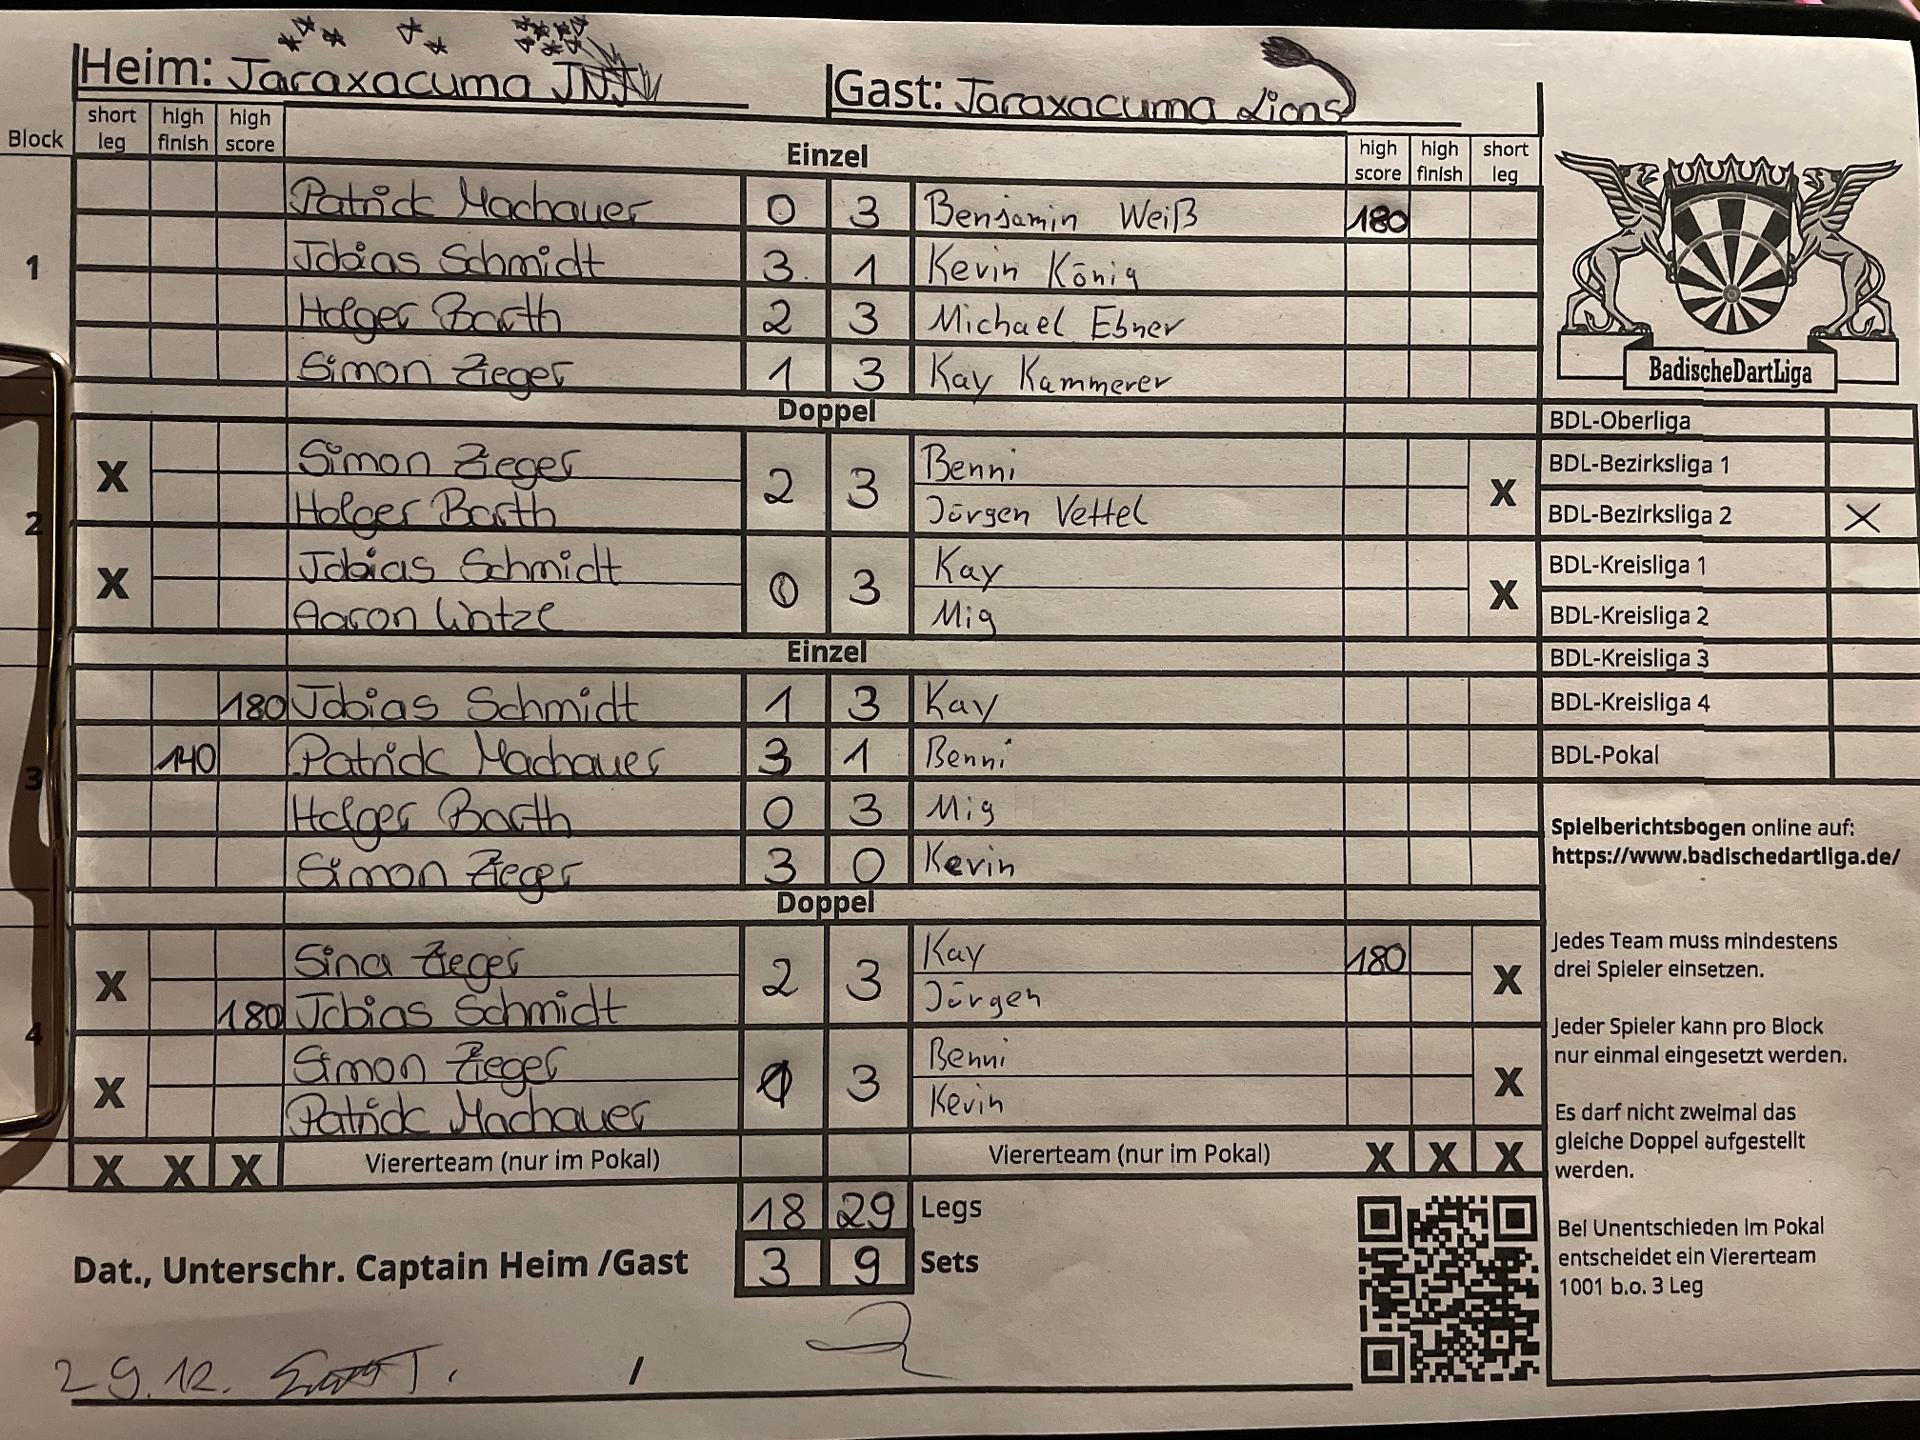 Heim: Jaraxacuma JNJ Gast: Jaraxacuma Lions
Block short leg high finish high score Einzel high score high finish short leg
Patrick Machauer 0 3 Benjamin Weiß 180
1 Tobias Schmidt 3 1 Kevin König
Holger Barth 2 3 Michael Ebner
Simon Zieger 1 3 Kay Kammerer
BadischeDartLiga
Doppel
Simon Zieger 2 3 Benni
X Holger Barth Jürgen Vettel X
2
Tobias Schmidt 0 3 Kay
X Aaron Watze Mig X
Einzel
180 Tobias Schmidt 1 3 Kay
140 Patrick Machauer 3 1 Benni
3
Holger Barth 0 3 Mig
Simon Zieger 3 0 Kevin
Doppel
Sina Zieger 2 3 Kay 180
X 180 Tobias Schmidt Jürgen X
4
Simon Zieger 3 Benni
X Patrick Machauer Kevin X
X X X Viererteam (nur im Pokal) Viererteam (nur im Pokal) X X X
18 29 Legs
Dat., Unterschr. Captain Heim /Gast 3 9 Sets
29.12. /
BDL-Oberliga
BDL-Bezirksliga 1
BDL-Bezirksliga 2 X
BDL-Kreisliga 1
BDL-Kreisliga 2
BDL-Kreisliga 3
BDL-Kreisliga 4
BDL-Pokal
Spielberichtsbogen online auf:
https://www.badischedartliga.de/
Jedes Team muss mindestens
drei Spieler einsetzen.
Jeder Spieler kann pro Block
nur einmal eingesetzt werden.
Es darf nicht zweimal das
gleiche Doppel aufgestellt
werden.
Bei Unentschieden im Pokal
entscheidet ein Viererteam
1001 b.o. 3 Leg